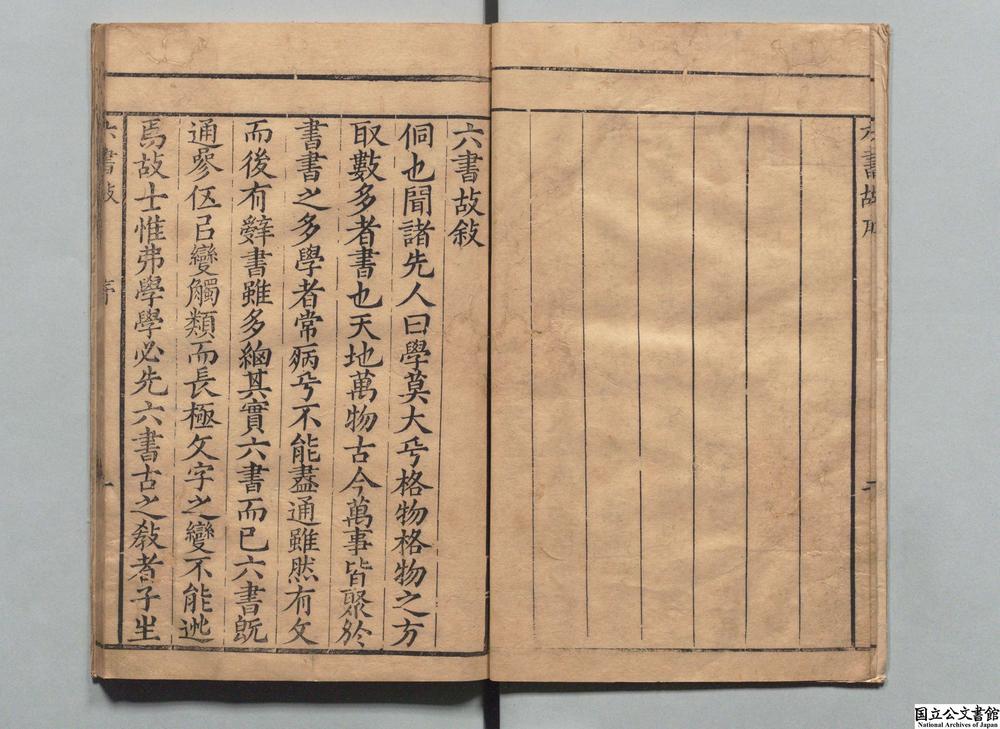 六書故敍
侗也聞諸先人曰學莫大乎格物格物之方
取數多者書也天地萬物古今萬事皆聚於
書書之多學者常病乎不能盡通雖然有文
而後有辤書雖多緫其實六書而已六書旣
通參伍㠯變觸類而長極文字之變不能逃
焉故士惟弗學學必先六書古之敎者子生
六書故
序
一
六書故
一
国立公文書館
National Archives of Japan